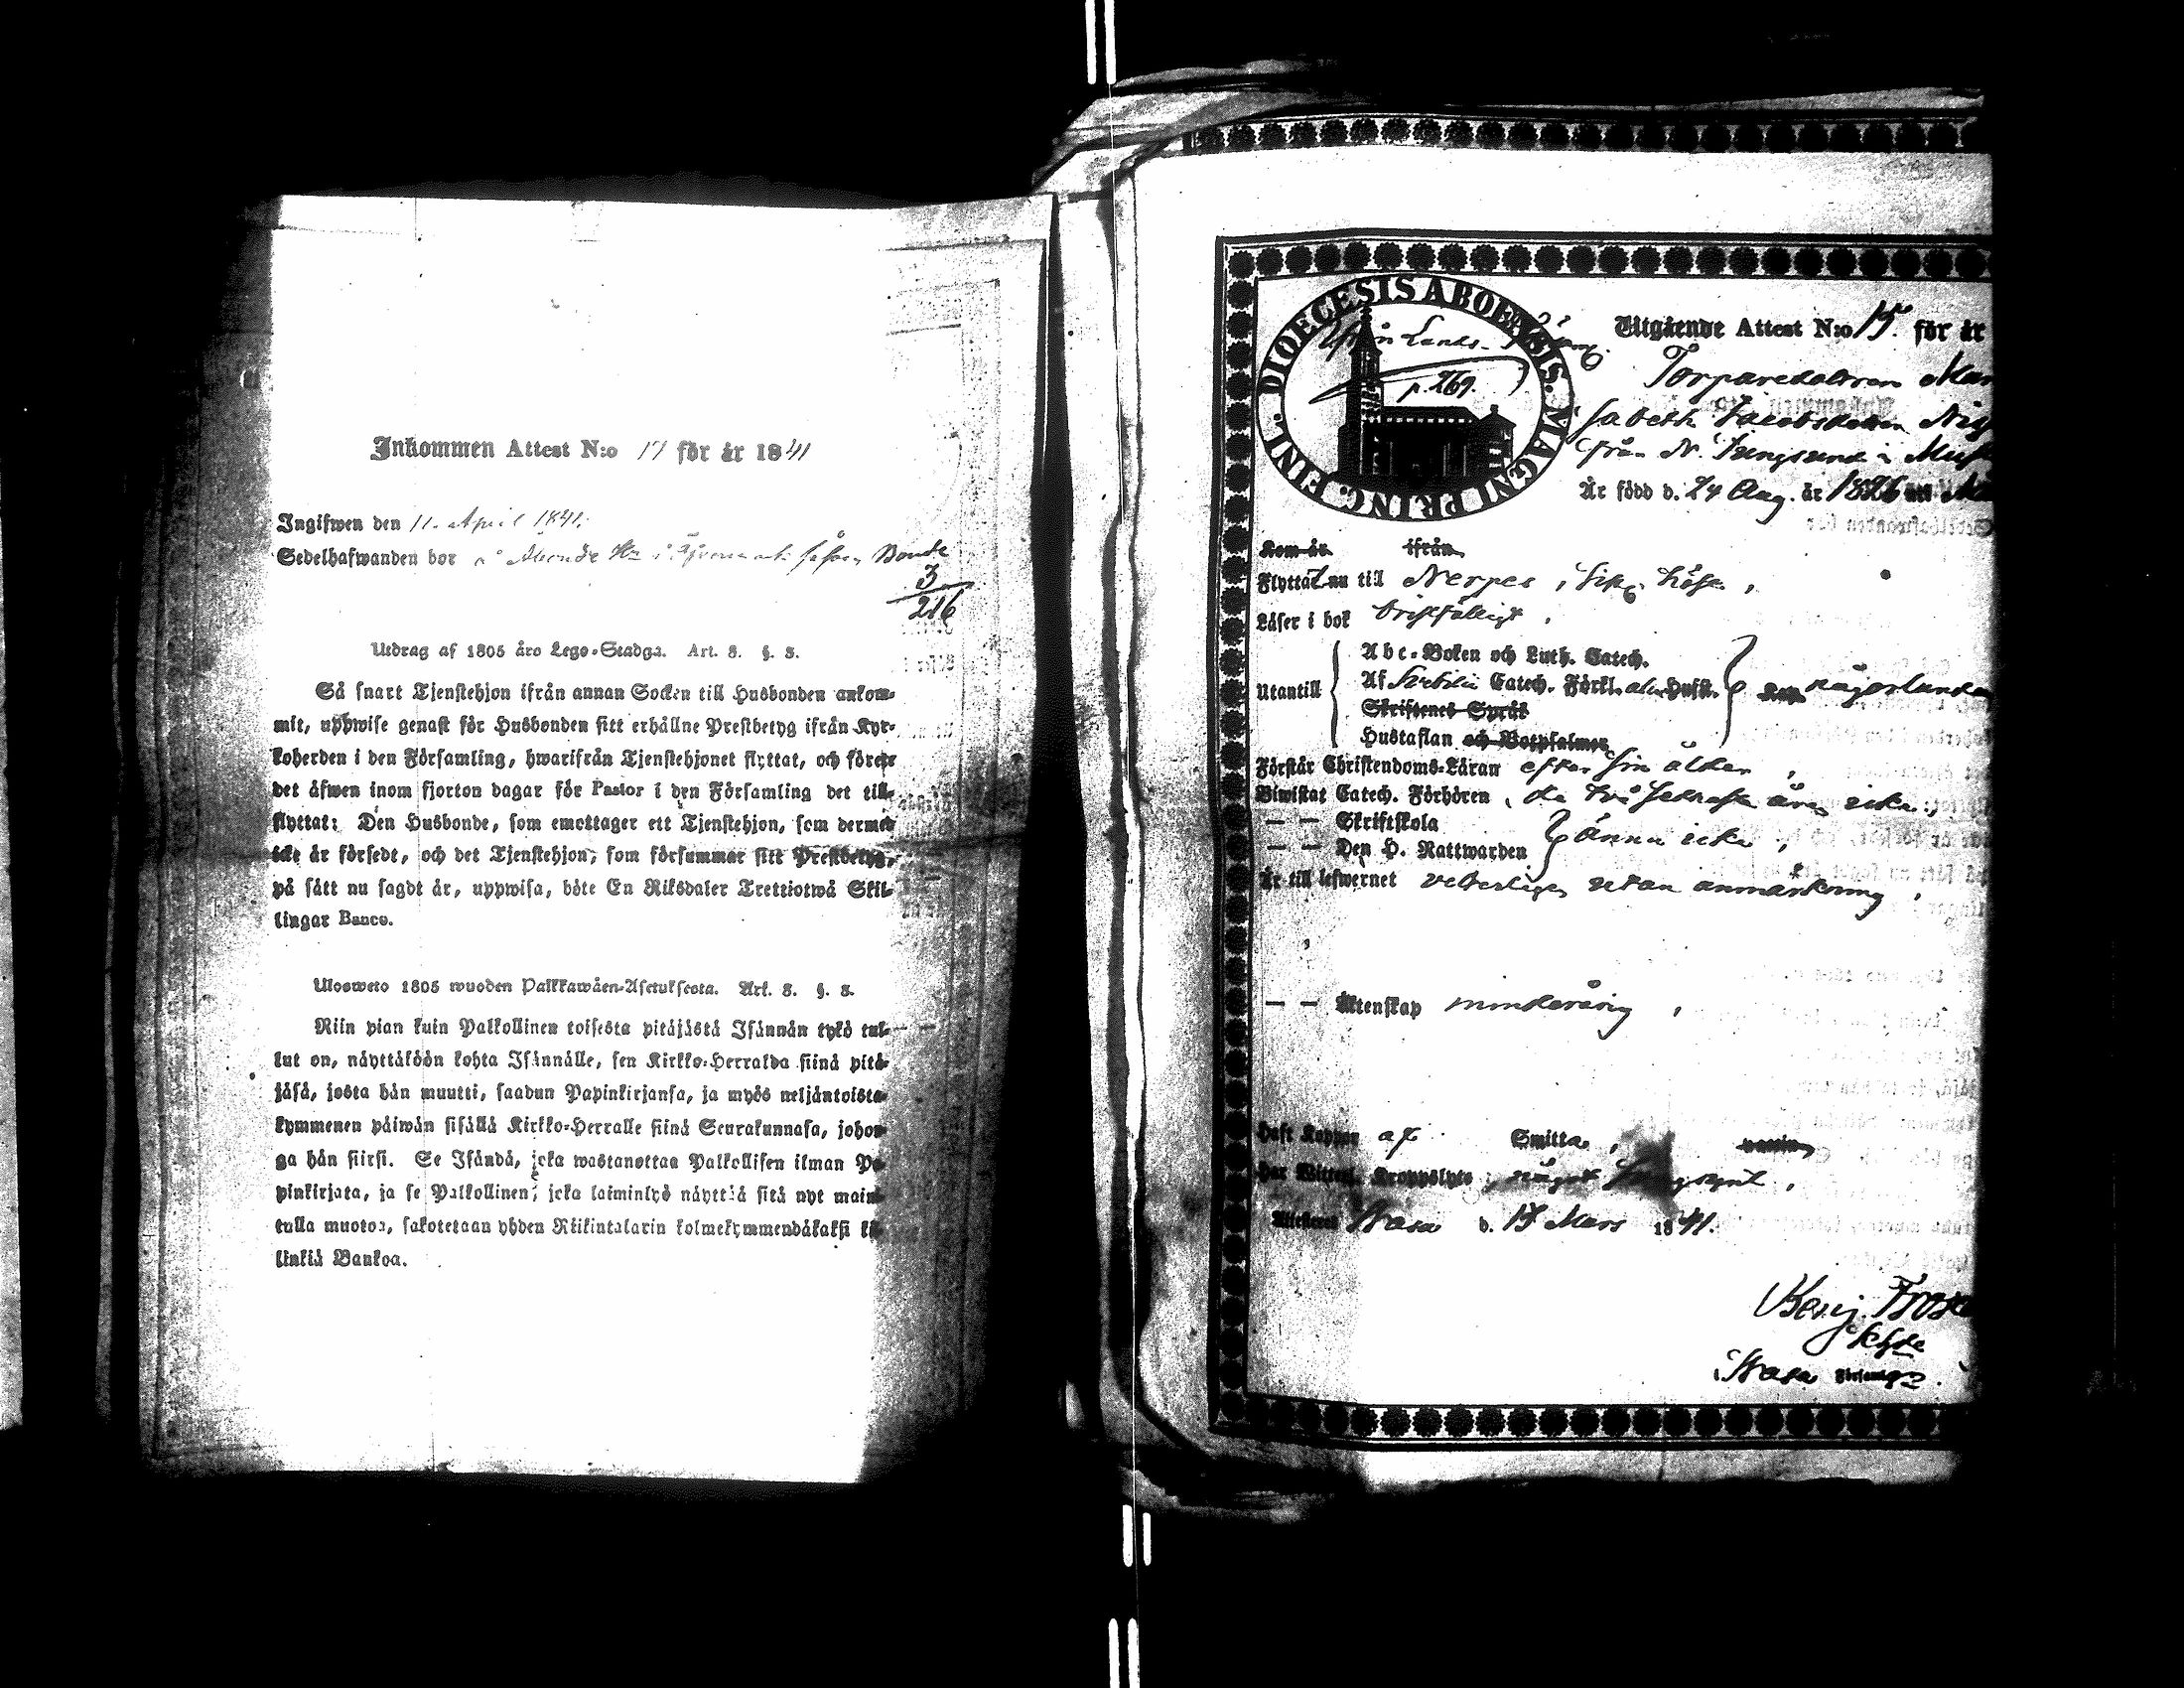 Inkommen Attest N:o 17 för år 1841
Ingifwen den 11. April 1841.
Sedelhafwanden bor Bonde
3
216
Utdrag af 1805 åro Lego-Stadga. Art. 8. §. 8.
Så snart Tjenstehjon ifrån annan Socken till Husbonden ankom-
mit, uppwise genast för Husbonden sitt erhållne Prestbetyg ifrån Kyr-
koherden i den Församling, hwarifrån Tjenstehjonet flyttat, och förete
det äfwen inom fjorton dagar för Pastor i den Församling det till-
flyttat; Den Husbonde, som emottager ett Tjenstehjon, som dermed
icke är försedt, och det Tjenstehjon, som försummar sitt Prestbetyg,
på sätt nu sagdt är, uppwisa, böte En Riksdaler Trettiotwå Skil-
lingar Banco.
Ulosweto 1805 wuoden Palkkawäen-Asetuksesta. Art. 8. §. 8.
Niin pian kuin Palkollinen toisesta pitäjästä Isännän tykö tul-
lut on, näyttäköön kohta Isännälle, sen Kirkko-Herralda siinä pitä-
jäsä, josta hän muutti, saadun Papinkirjansa, ja myös neljäntoista-
kymmenen päiwän sisällä Kirkko-Herralle siinä Seurakunnasa, johon-
ga hän siirsi. Se Isändä, joka wastanottaa Palkollisen ilman Pa-
pinkirjata, ja se Palkollinen, joka laiminlyö näyttää sitä nyt maini-
tulla muotoa, sakotetaan yhden Riikintalarin kolmekymmendäkaksi kil-
linkiä Bankoa.
DIOECESIS ABOENSIS. MAGNI PRINC. FINL.
p. 269.
Utgående Attest N:o 15. för år
Torparedottren
Jacobsdotter
från
Är född d. 24 Aug. år 1826
Kom år ifrån
Flyttat nu till Nerpes
Läser i bok bristfälligt,
Utantill
Abc-Boken och Luth. Catech.
Af Svebilii Catech. Förkl.
Skriftenes Språk
Hustaflan och Botpsalmer
någorlunda
Förstår Christendoms-Läran efter sin ålder,
Biwistat Catech. Förhören, de två sednaste åren icke,
— — Skriftskola
— — Den H. Nattwarden
ännu icke,
Är till lefwernet utan anmärkning,
— — Äktenskap minderårig,
Haft Koppor af Smitta,
Har Kroppslyte, något
Attesterar Wasa d. 17 Mars 1841.
Benj.
i Wasa